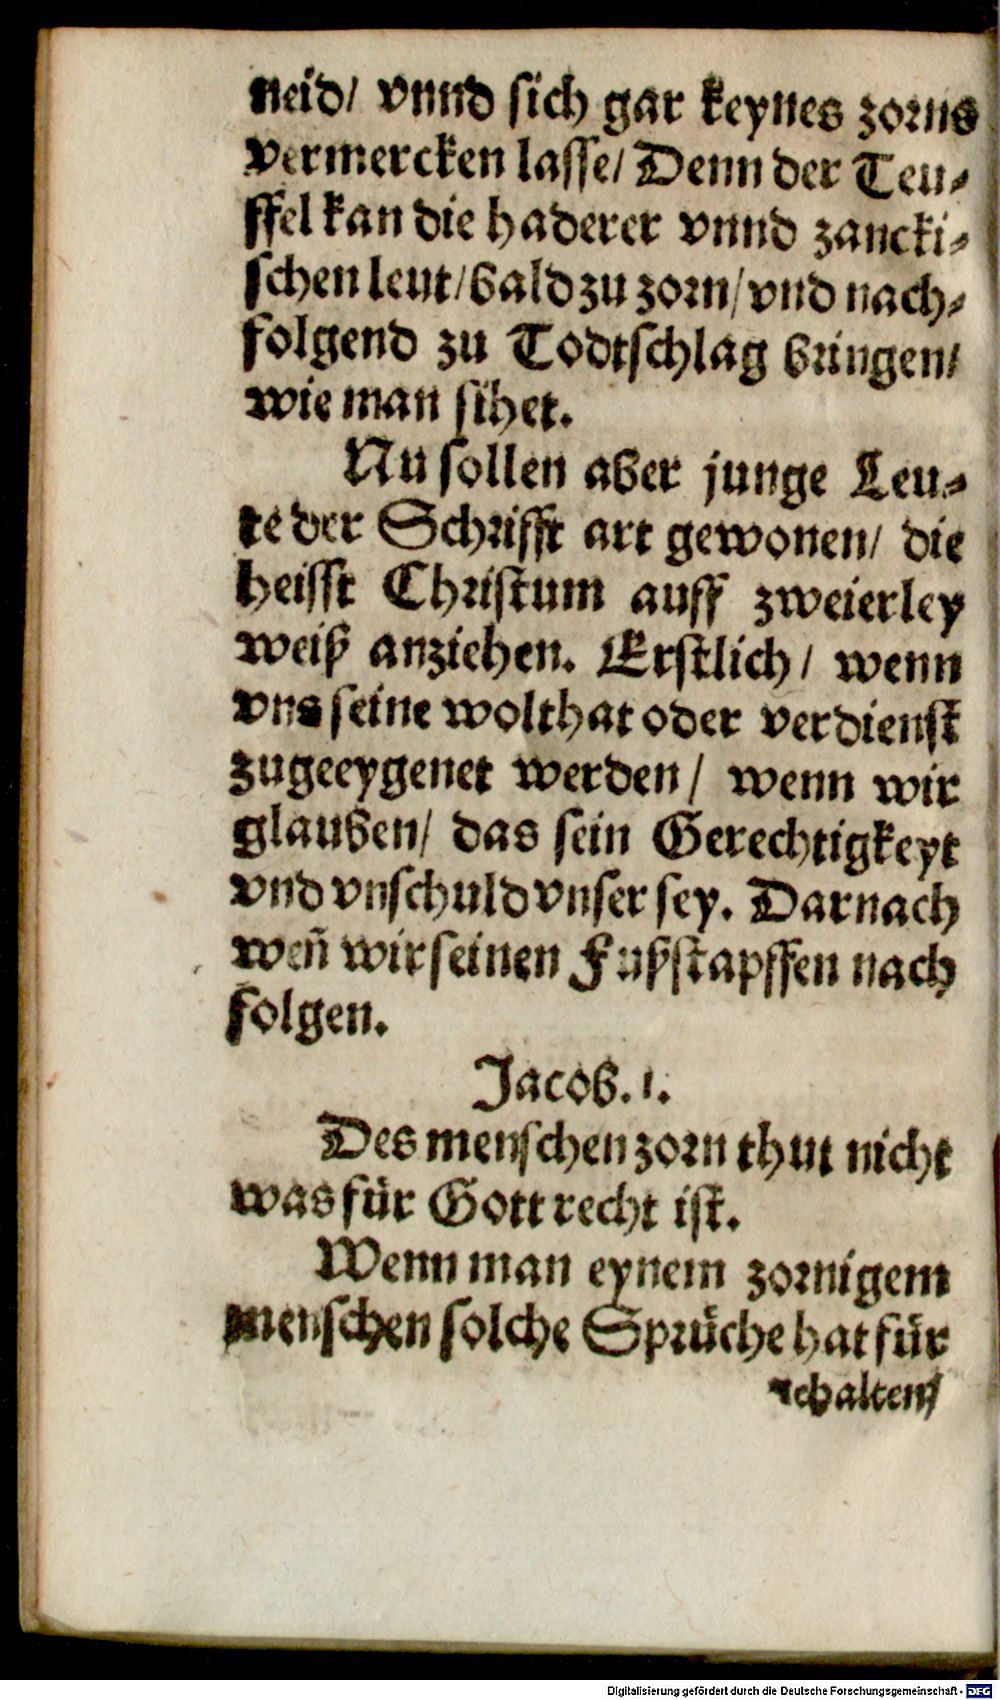 neid/ vnnd sich gar keynes zorns
vermercken lasse/ Denn der Teu⸗
ffel kan die haderer vnnd zancki⸗
schen leut/ bald zu zorn/ vnd nach⸗
folgend zu Todtschlag bringen/
wie man sihet.
Nu sollen aber junge Leu⸗
te der Schrifft art gewonen/ die
heisst Christum auff zweierley
weiß anziehen. Erstlich/ wenn
vns seine wolthat oder verdienst
zugeeygenet werden/ wenn wir
glauben/ das sein Gerechtigkeyt
vnd vnschuld vnser sey. Darnach
weñ wir seinen Fußstapffen nach
folgen.
Jacob. 1.
Des menschen zorn thut nicht
was für Gott recht ist.
Wenn man eynem zornigem
menschen solche Sprüche hat für
gehalten/
Digitalisierung gefördert durch die Deutsche Forschungsgemeinschaft - DFG